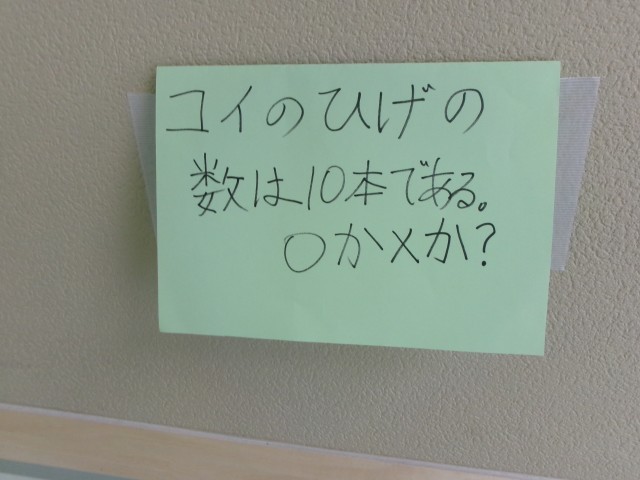 コイのひげの
数は10本である。
○か×か?